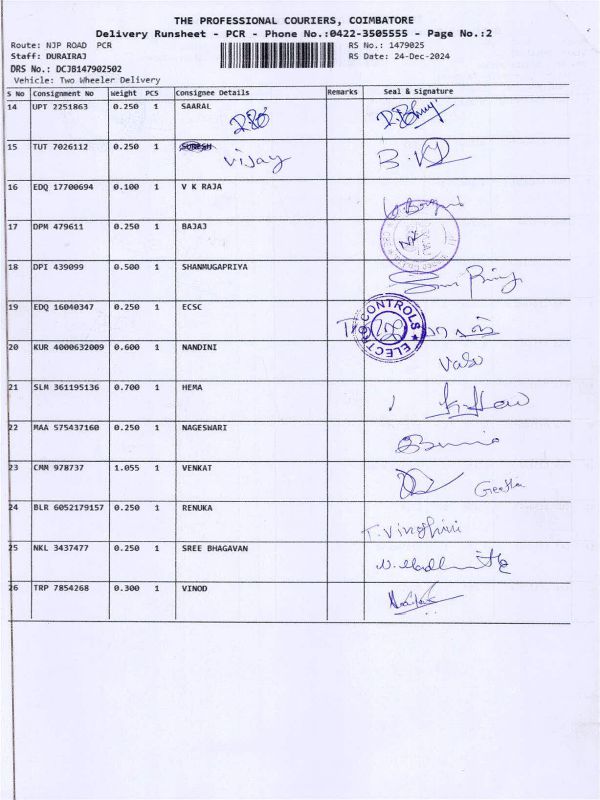 THE PROFESSIONAL COURIERS, COIMBATORE
Delivery Runsheet - PCR - Phone No.:0422-3505555 - Page No.:2
Route: NJP ROAD PCR RS No.: 1479025
Staff: DURAIRAJ RS Date: 24-Dec-2024
DRS No.: DCJB147902502
Vehicle: Two Wheeler Delivery
S No Consignment No Weight PCS Consignee Details Remarks Seal & Signature
14 UPT 2251863 0.250 1 SAARAL
15 TUT 7026112 0.250 1 SURESH
Vijay
16 EDQ 17700694 0.100 1 V K RAJA
17 DPM 479611 0.250 1 BAJAJ
18 DPI 439099 0.500 1 SHANMUGAPRIYA
19 EDQ 16040347 0.250 1 ECSC
ELECTRO CONTROLS
20 KUR 4000632009 0.600 1 NANDINI
21 SLM 361195136 0.700 1 HEMA
22 MAA 575437160 0.250 1 NAGESWARI
23 CMM 978737 1.055 1 VENKAT Geetha
24 BLR 6052179157 0.250 1 RENUKA
25 NKL 3437477 0.250 1 SREE BHAGAVAN
26 TRP 7854268 0.300 1 VINOD